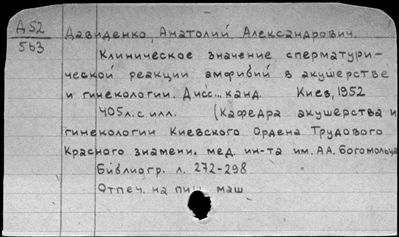 Д52
563
Давиденко, Анатолий Александрович.
Клиническое значение сперматури-
ческой реакции амфибий в акушерстве
и гинекологии. Дисс... канд. Киев, 1952
405л. с илл. (Кафедра акушерства и
гинекологии Киевского Ордена Трудового
Красного знамени мед. ин-та им. А.А. Богомольца
Библиогр. л. 272-298
Отпеч. на пиш маш